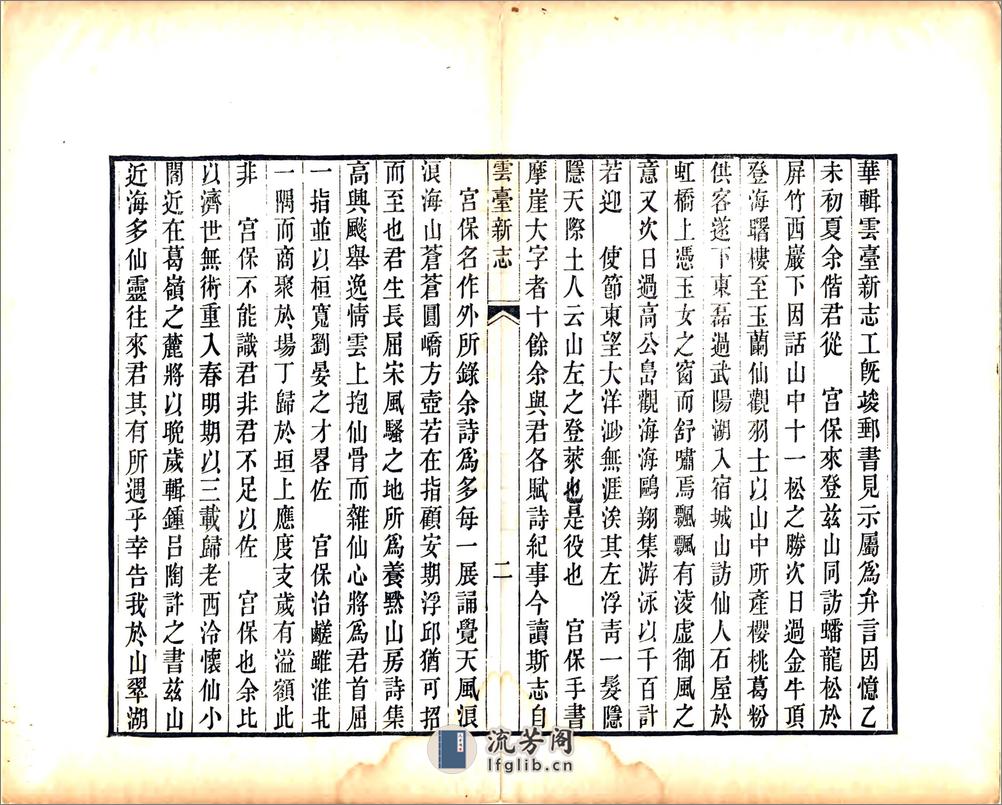 華輯雲臺新志工既竣郵書見示屬爲弁言因憶乙
未初夏余偕君從　宮保來登茲山同訪蟠龍松於
屏竹西巖下因話山中十一松之勝次日過金牛頂
登海曙樓至玉蘭仙觀羽士以山中所產櫻桃葛粉
供客遂下東磊過武陽湖入宿城山訪仙人石屋於
虹橋上憑玉女之窗而舒嘯焉飄飄有淩虛御風之
意又次日過高公島觀海海鷗翔集游泳以千百計
若迎　使節東望大洋渺無涯涘其左浮靑一髮隱
隱天際土人云山左之登萊也是役也　宮保手書
摩崖大字者十餘余與君各賦詩紀事今讀斯志自
雲臺新志　二
宮保名作外所錄余詩爲多每一展誦覺天風浪
浪海山蒼蒼圓嶠方壺若在指顧安期浮邱猶可招
而至也君生長屈宋風騷之地所爲養默山房詩集
高興飈舉逸情雲上抱仙骨而雜仙心將爲君首屈
一指並以桓寬劉晏之才畧佐　宮保治鹺雖淮北
一隅而商聚於場丁歸於垣上應度支歲有溢額此
非　宮保不能識君非君不足以佐　宮保也余比
以濟世無術重入春明期以三載歸老西泠懷仙小
閣近在葛嶺之麓將以晚歲輯鍾呂陶許之書茲山
近海多仙靈往來君其有所遇乎幸告我於山翠湖
流芳阁
lfglib.cn